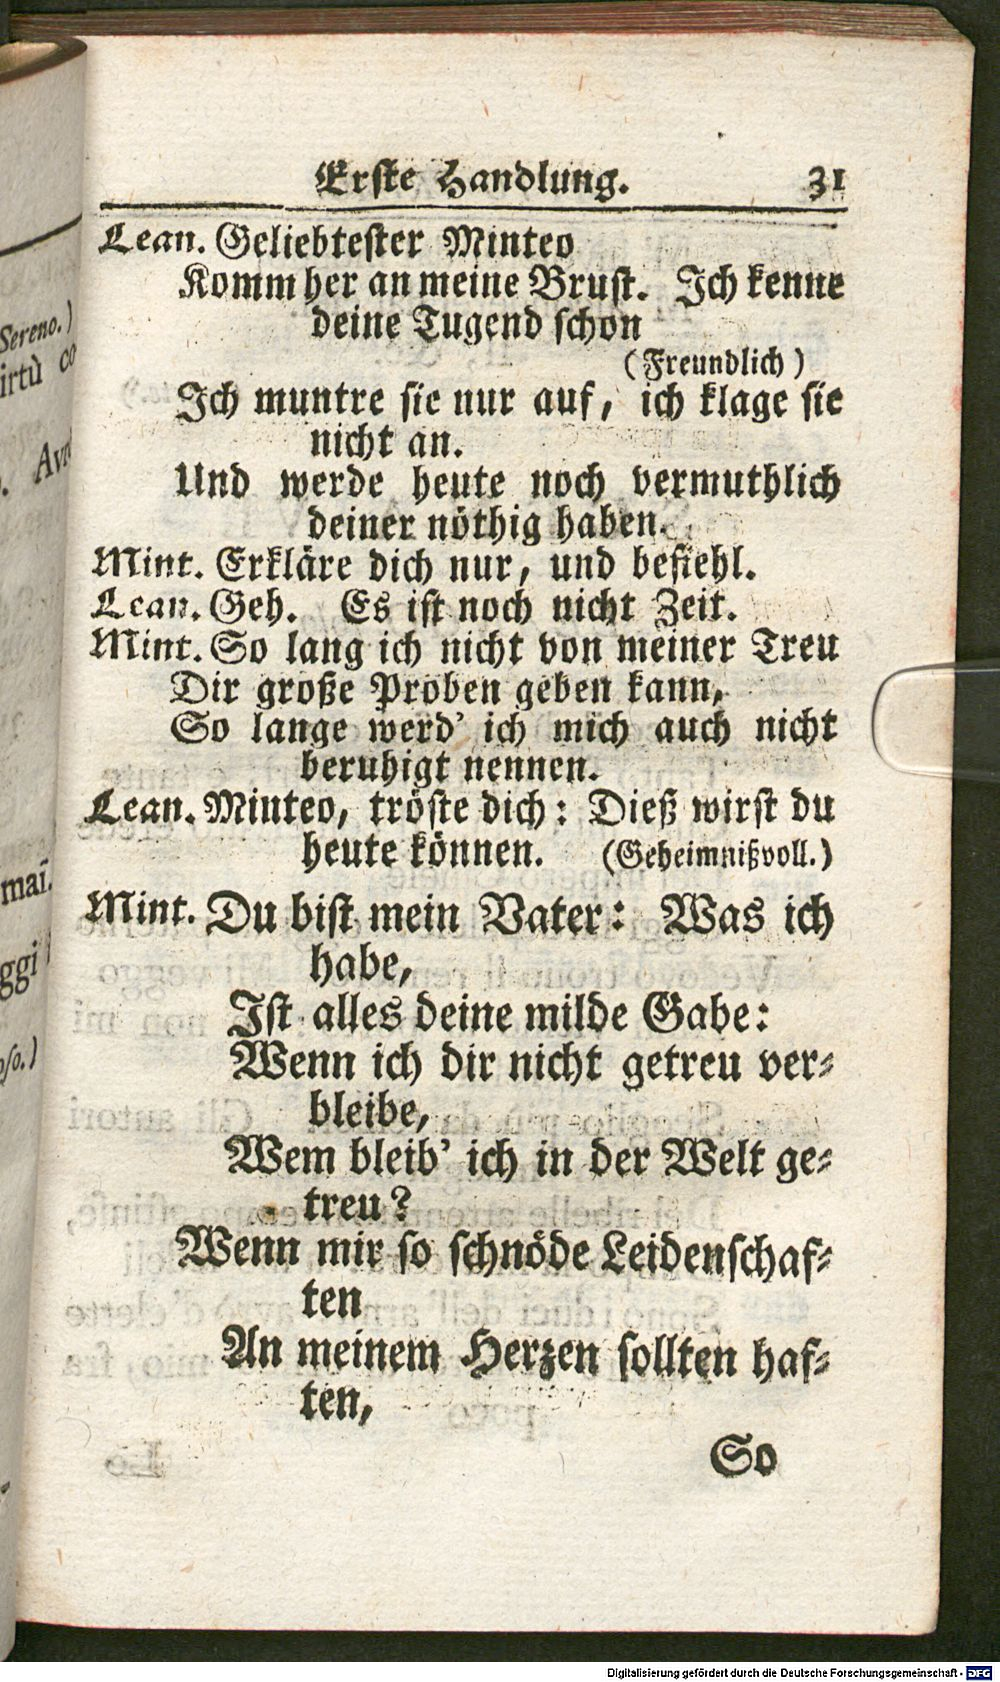 Erste Handlung. 31
Lean. Geliebtester Minteo
Komm her an meine Brust. Ich kenne
deine Tugend schon
(Freundlich)
Ich muntre sie nur auf, ich klage sie
nicht an.
Und werde heute noch vermuthlich
deiner nöthig haben.
Mint. Erkläre dich nur, und befiehl.
Lean. Geh. Es ist noch nicht Zeit.
Mint. So lang ich nicht von meiner Treu
Dir große Proben geben kann,
So lange werd' ich mich auch nicht
beruhigt nennen.
Lean. Minteo, tröste dich: Dieß wirst du
heute können. (Geheimnißvoll.)
Mint. Du bist mein Vater: Was ich
habe,
Ist alles deine milde Gabe:
Wenn ich dir nicht getreu ver-
bleibe,
Wem bleib' ich in der Welt ge-
treu?
Wenn mir so schnöde Leidenschaf-
ten
An meinem Herzen sollten haf-
ten,
So
Sereno.)
irtù co
mai.
ggi
oso.)
Digitalisierung gefördert durch die Deutsche Forschungsgemeinschaft - DFG